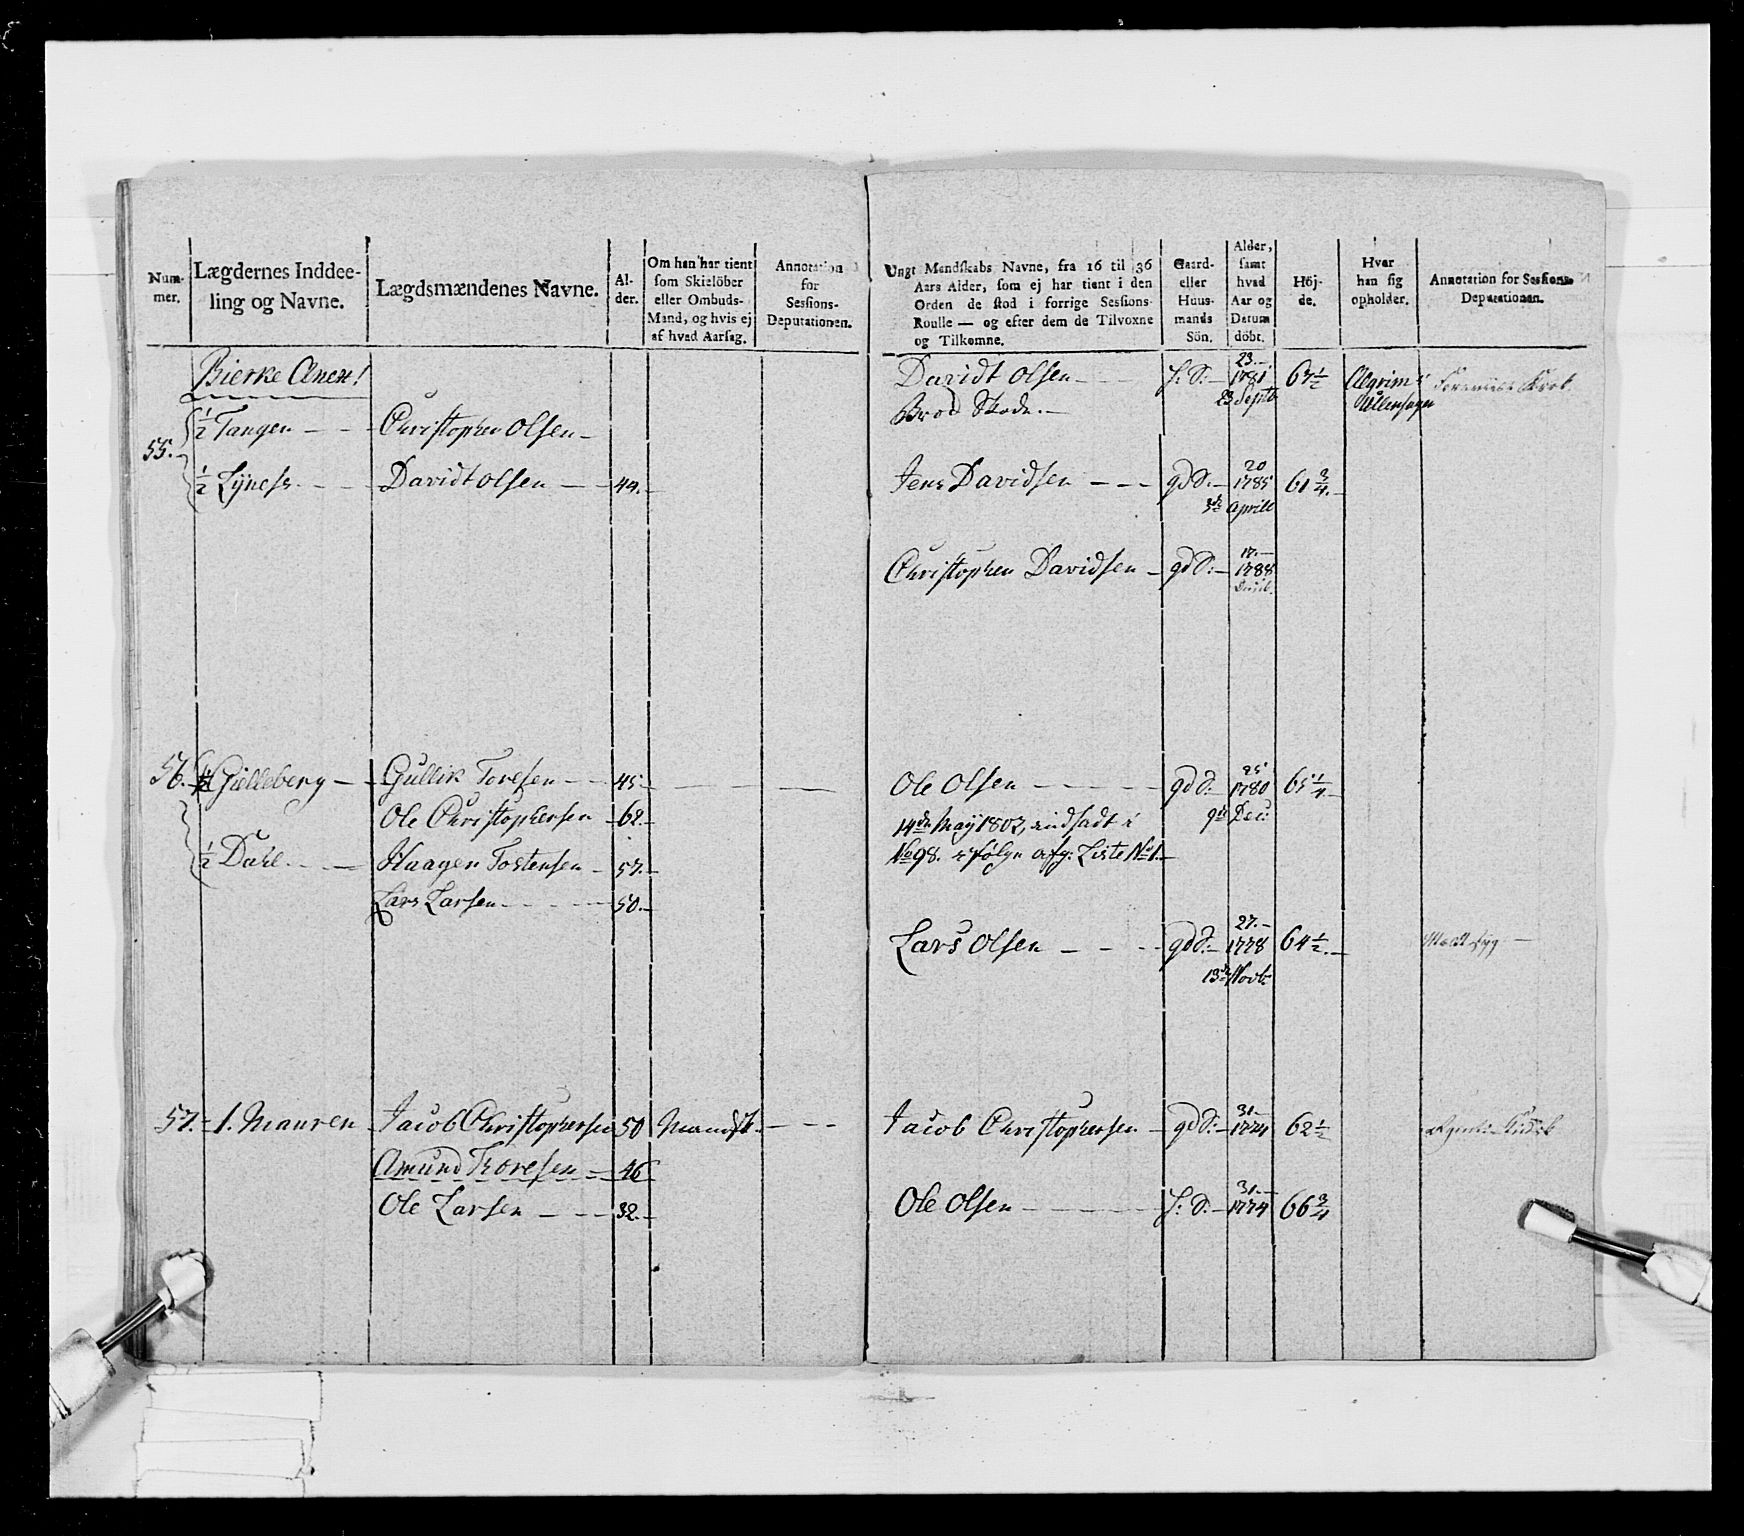 Num-
mer.
Lægdernes Inddee-
ling og Navne.
Lægdsmændenes Navne.
Al-
der.
Om han har tient
som Skielöber
eller Ombuds-
Mand, og hvis ej
af hvad Aarsag.
Annotation
for
Sessions-
Deputationen.
Bierke Anex!
55.
1/2 Tangen
Christophen Olsen
1/2 Lÿness
Davidt Olsen 44.
56. Gielleberg Gullik Toresen 45
Ole Christophersen 62.
1/2 Dahl Haagen Tostensen 57.
Lars Larsen 50.
57. 1. Mauren Jacob Christophersen 50 Mandsk.
Amund Thoresen 46
Ole Larsen 32.
Ungt Mandskabs Navne, fra 16 til 36
Aars Alder, som ej har tient i den
Orden de stod i forrige Sessions-
Roulle — og efter dem de Tilvoxne
og Tilkomne.
Gaard-
eller
Huus-
mands
Sön.
Alder,
samt
hvad
Aar og
Datum
döbt.
Höj-
de.
Hvor
han sig
opholder.
Annotation for Sessions-
Deputationen.
23.
Davidt Olsen H. S: 1781 67 1/2
23 Septb
20
Jens Davidsen gd S: 1785 61 3/4.
Aprill
17.
Christophen Davidsen gd S: 1788
25
Ole Olsen gd S: 1780 65 1/4
14de Maÿ 1803, indsadt i 9de Dec:
No 98. ifølge afg: Liste No 1.
27.
Lars Olsen gd S: 1778 64 1/2.
13de Novb:
31.
Jacob Christophersen gd S: 1774 62 1/2
31.
Ole Olsen H. S: 1774 66 3/4